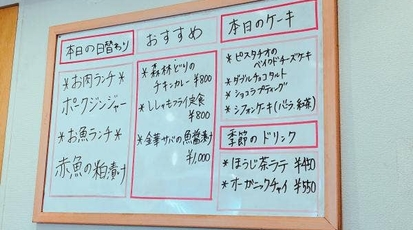 本日の日替わり
*お肉ランチ*
ポークジンジャー
*お魚ランチ*
赤魚の粕漬け
おすすめ
*森林どりの
チキンカレー ¥800
*ししゃもフライ定食
¥800
*金華サバの魚醤漬け
¥1,000
本日のケーキ
*ピスタチオの
ベイクドチーズケーキ
*ダブルチョコタルト
*ショコラプディング
*シフォンケーキ(バラ, 紅茶)
季節のドリンク
*ほうじ茶ラテ ¥450
*オーガニックチャイ ¥550